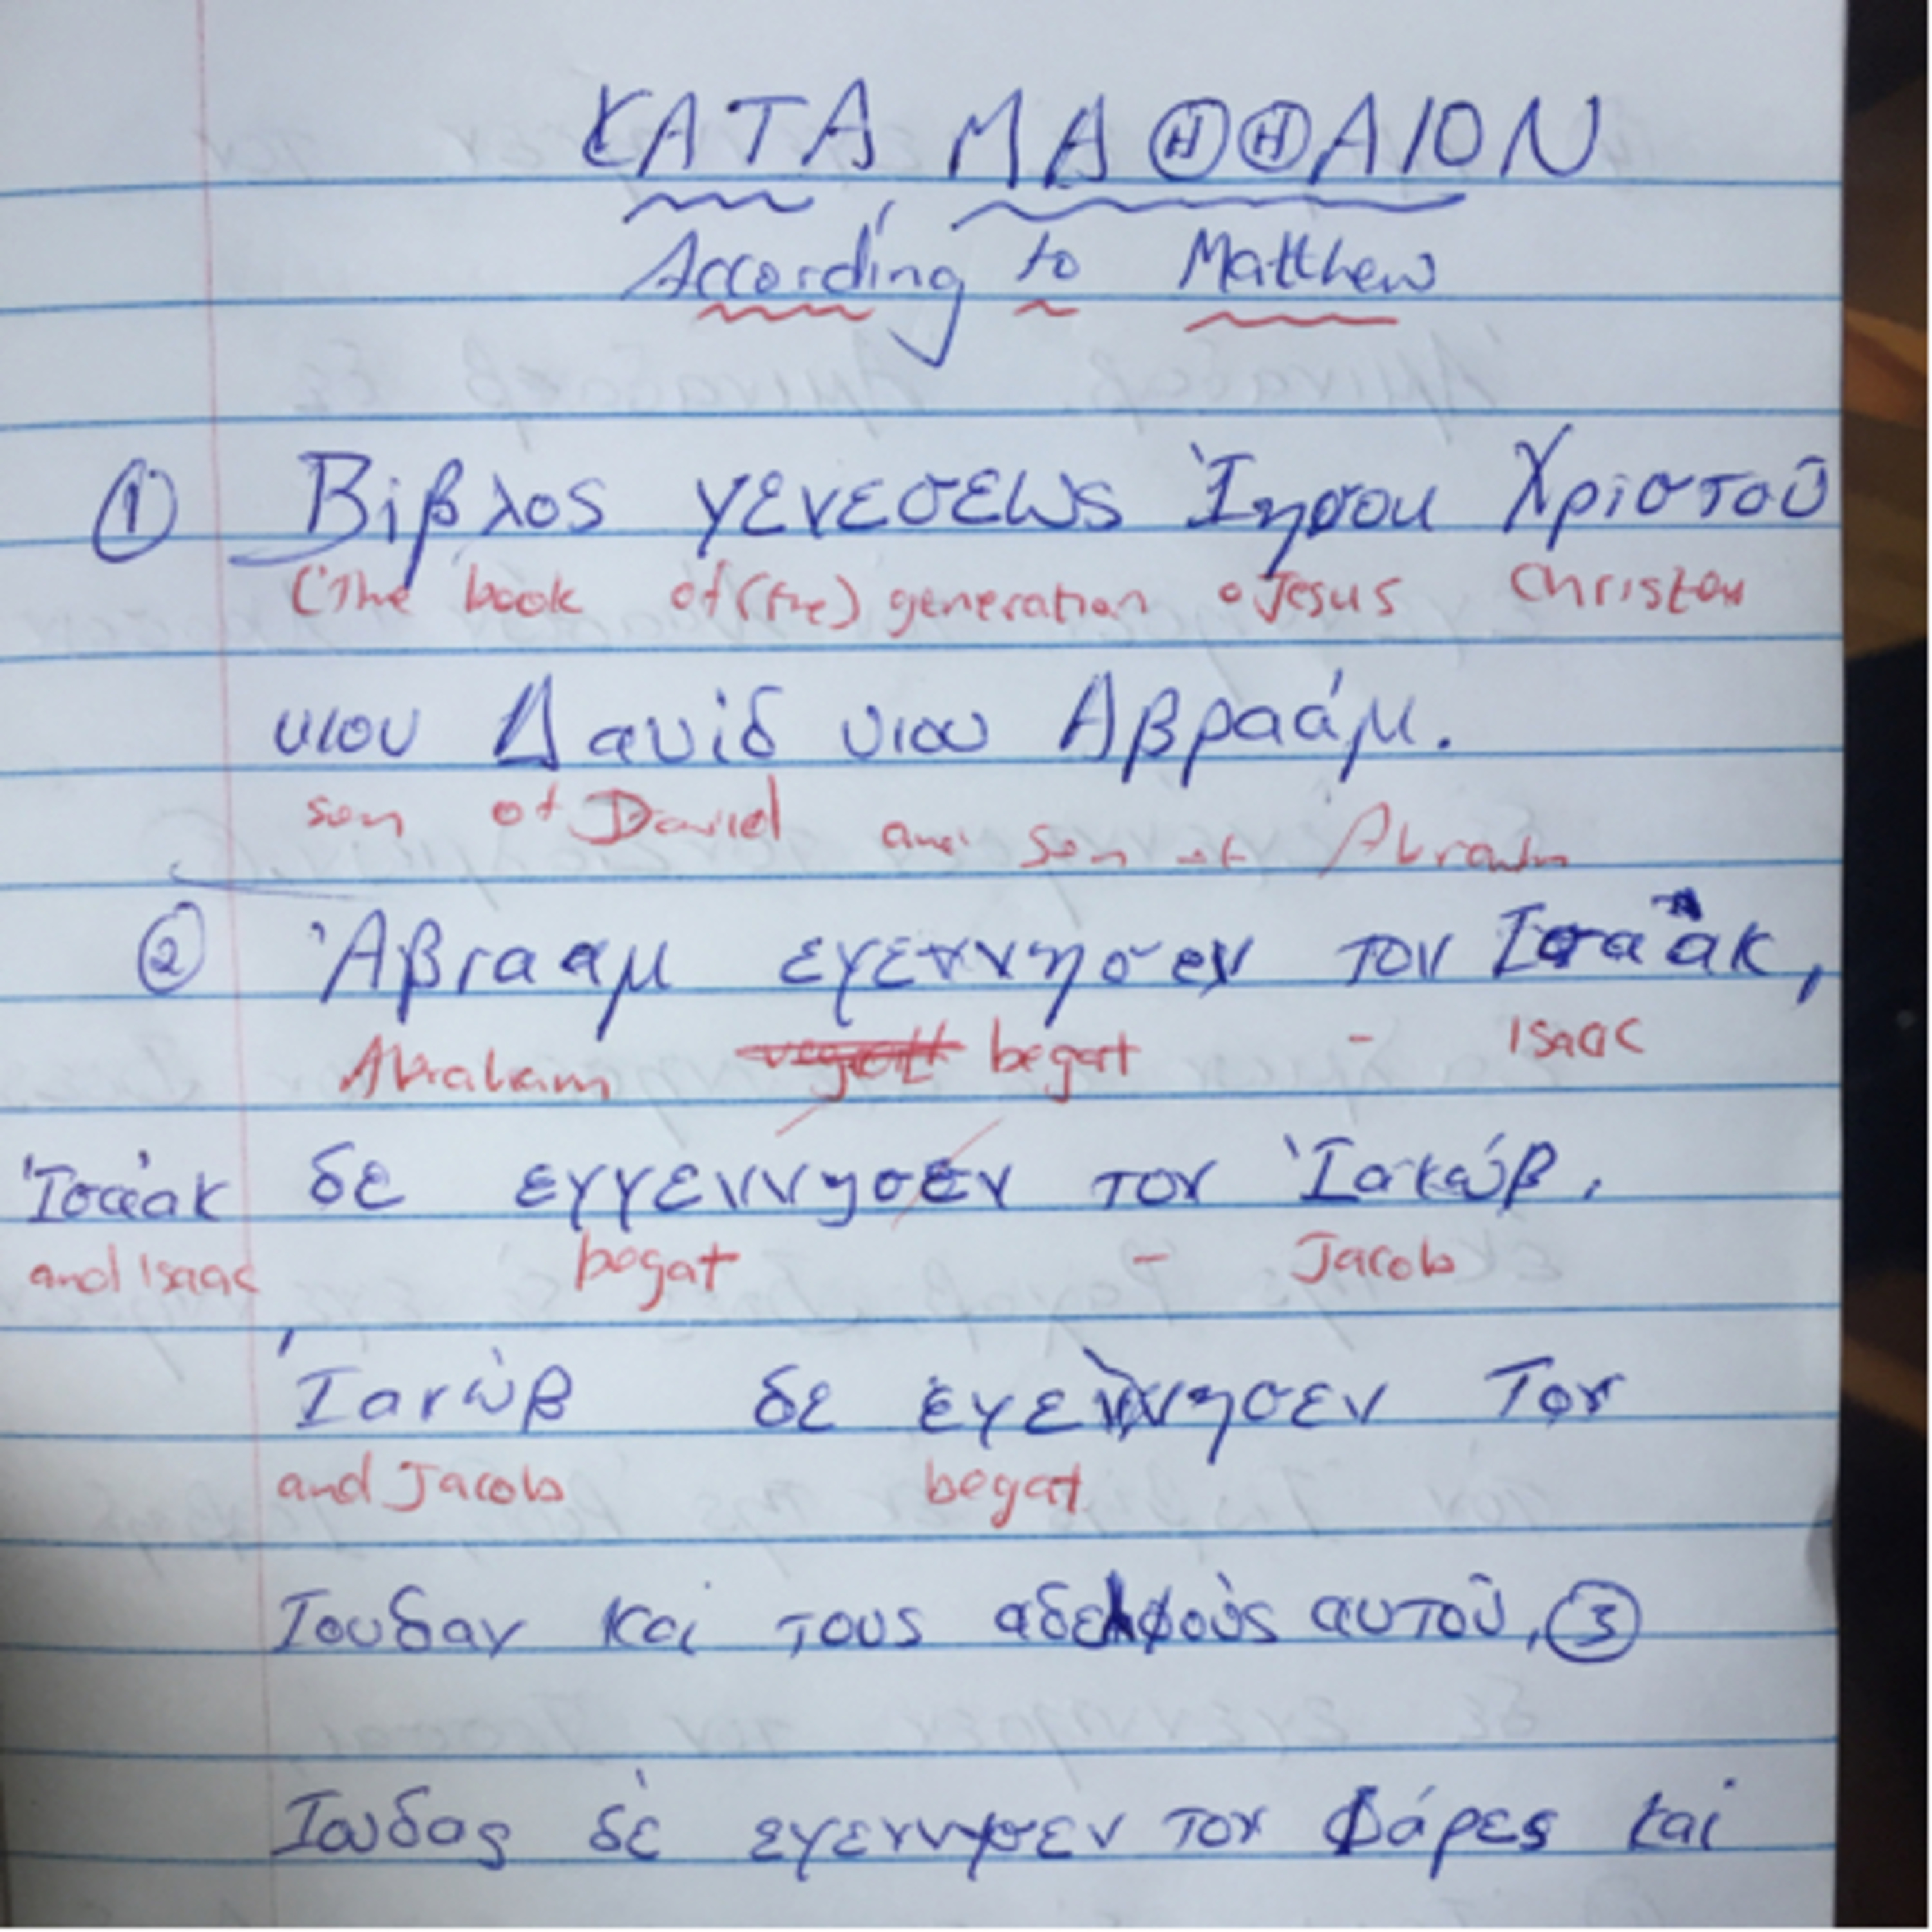 ΚΑΤΑ ΜΑΘΘΑΙΟΝ
According to Matthew
① Βίβλος γενεσεως Ἰησου Χριστοῦ
(The book of (the) generation o Jesus Christou
υιου Δαυίδ υιου Αβραάμ.
son of David and son of Abraham
② Ἀβρααμ εγεννησεν τον Ισαὰκ,
Abraham begat - Isaac
Ἰσαὰκ δε εγγεννησεν τον Ἰακώβ,
and Isaac begat - Jacob
Ἰακὼβ δε ἐγεννησεν Τον
and Jacob begat
Ιουδαν και τους αδελφοὺς αυτοῦ, ③
Ιουδας δὲ εγεννησεν τον Φάρες καὶ